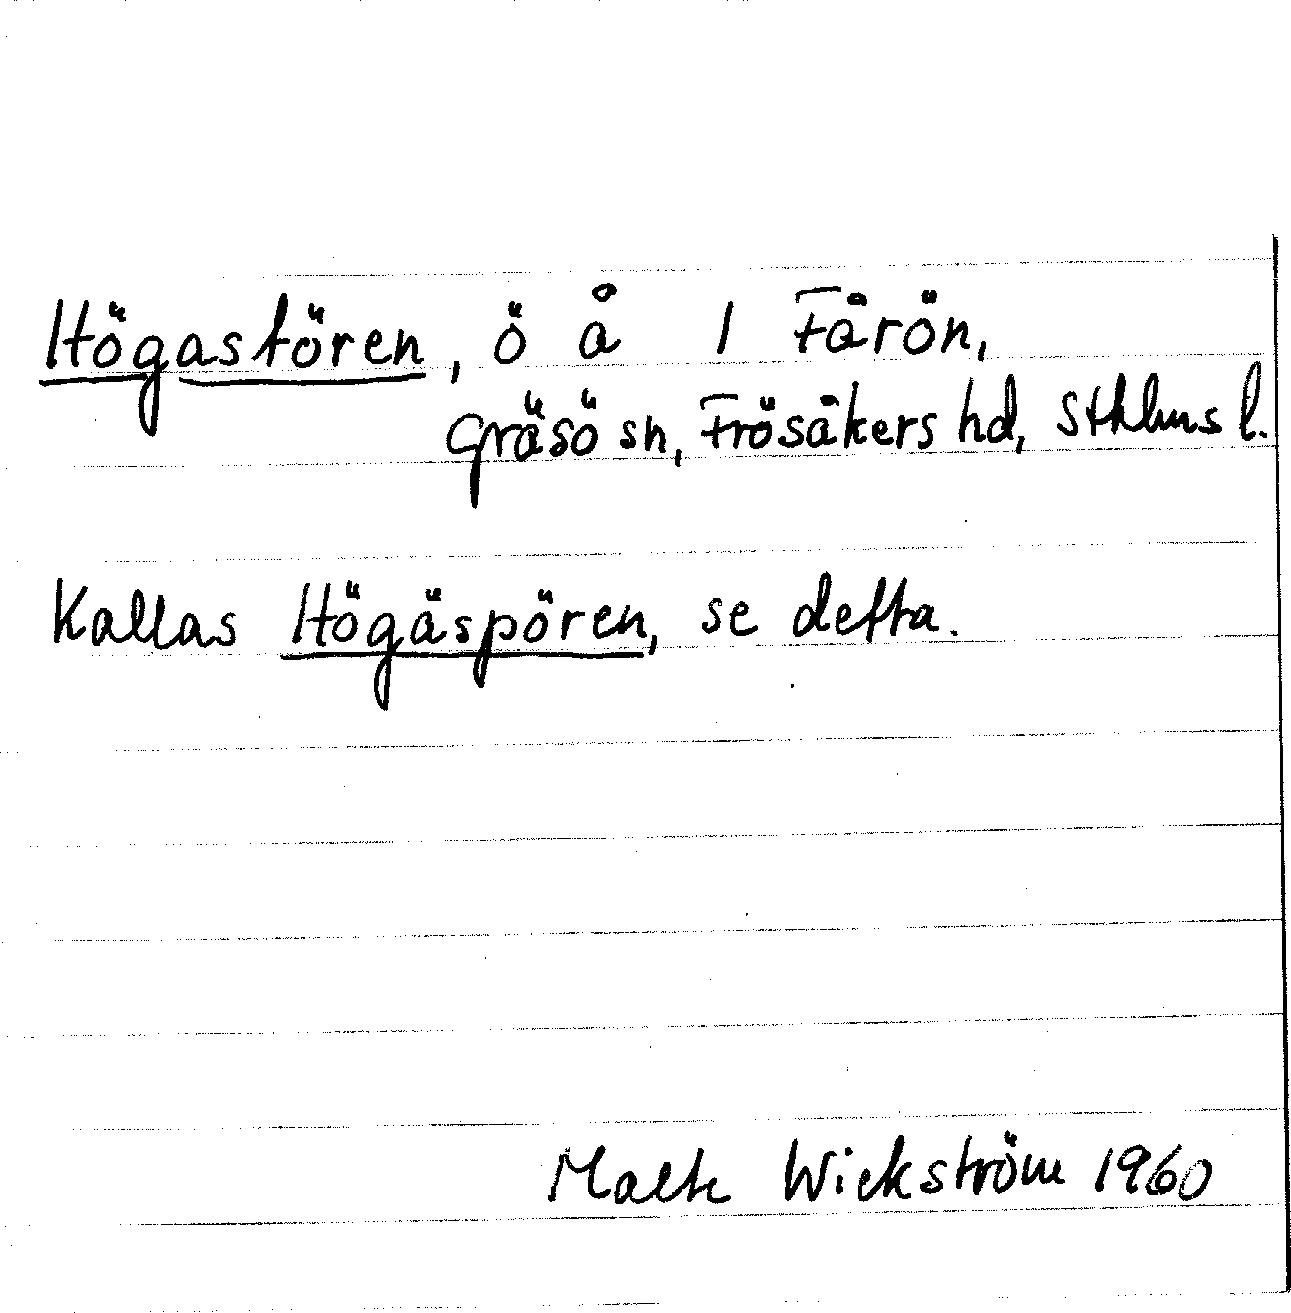 Högastören, ö å 1 Fårön,
Gräsö sn, Frösåkers hd, Sthlms l.
Kallas Högäspören, se detta.
Malte Wickström 1960